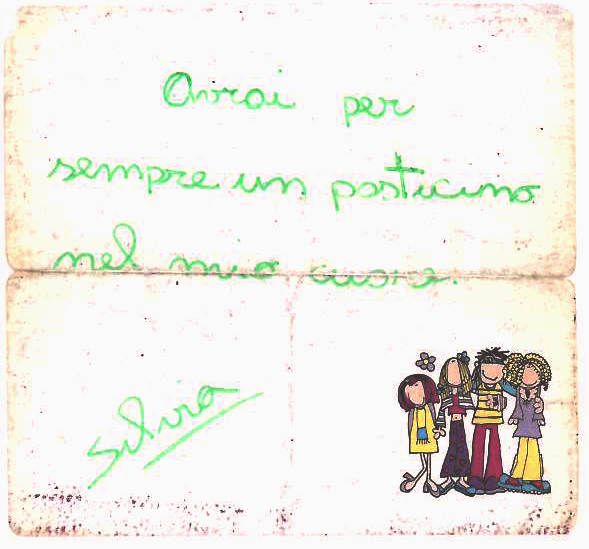 Avrai per
sempre un posticino
nel mio cuore.
Silvia